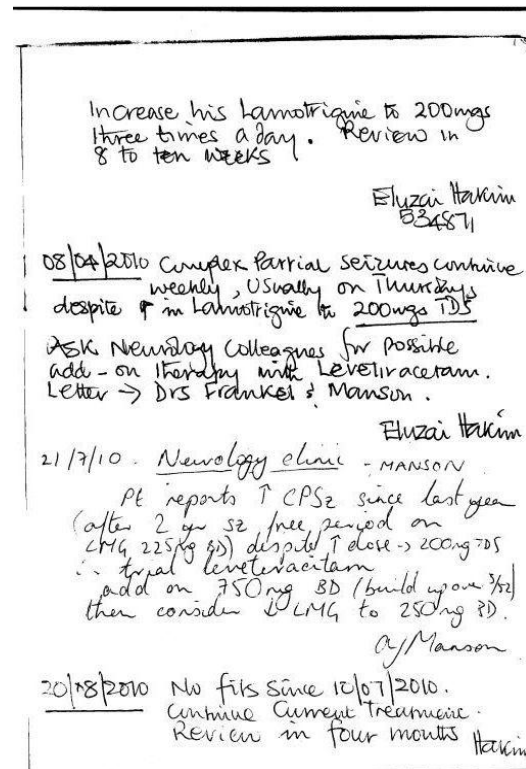 Increase his Lamotrigine to 200mgs
three times a day. Review in
8 to ten weeks
Eluzai Hakim
534871
08/04/2010 Complex Partial Seizures continue
weekly, usually on Thursdays
despite ↑ in Lamotrigine to 200mgs TDS
ASK Neurology Colleagues for possible
add-on therapy with Levetiracetam.
Letter → Drs Frankel & Manson.
Eluzai Hakim
21/7/10. Neurology clinic - MANSON
Pt reports ↑ CPSz since last year
(after 2 yr sz free period on
LMG 225mg BD) despite ↑ dose → 200mg TDS
∴ trial leveteracitam
add on 750mg BD (build up over 3/52)
then consider ↓ LMG to 250mg BD.
AJ Manson
20/08/2010 No fits since 10/07/2010.
Continue Current Treatment.
Review in four months Hakim